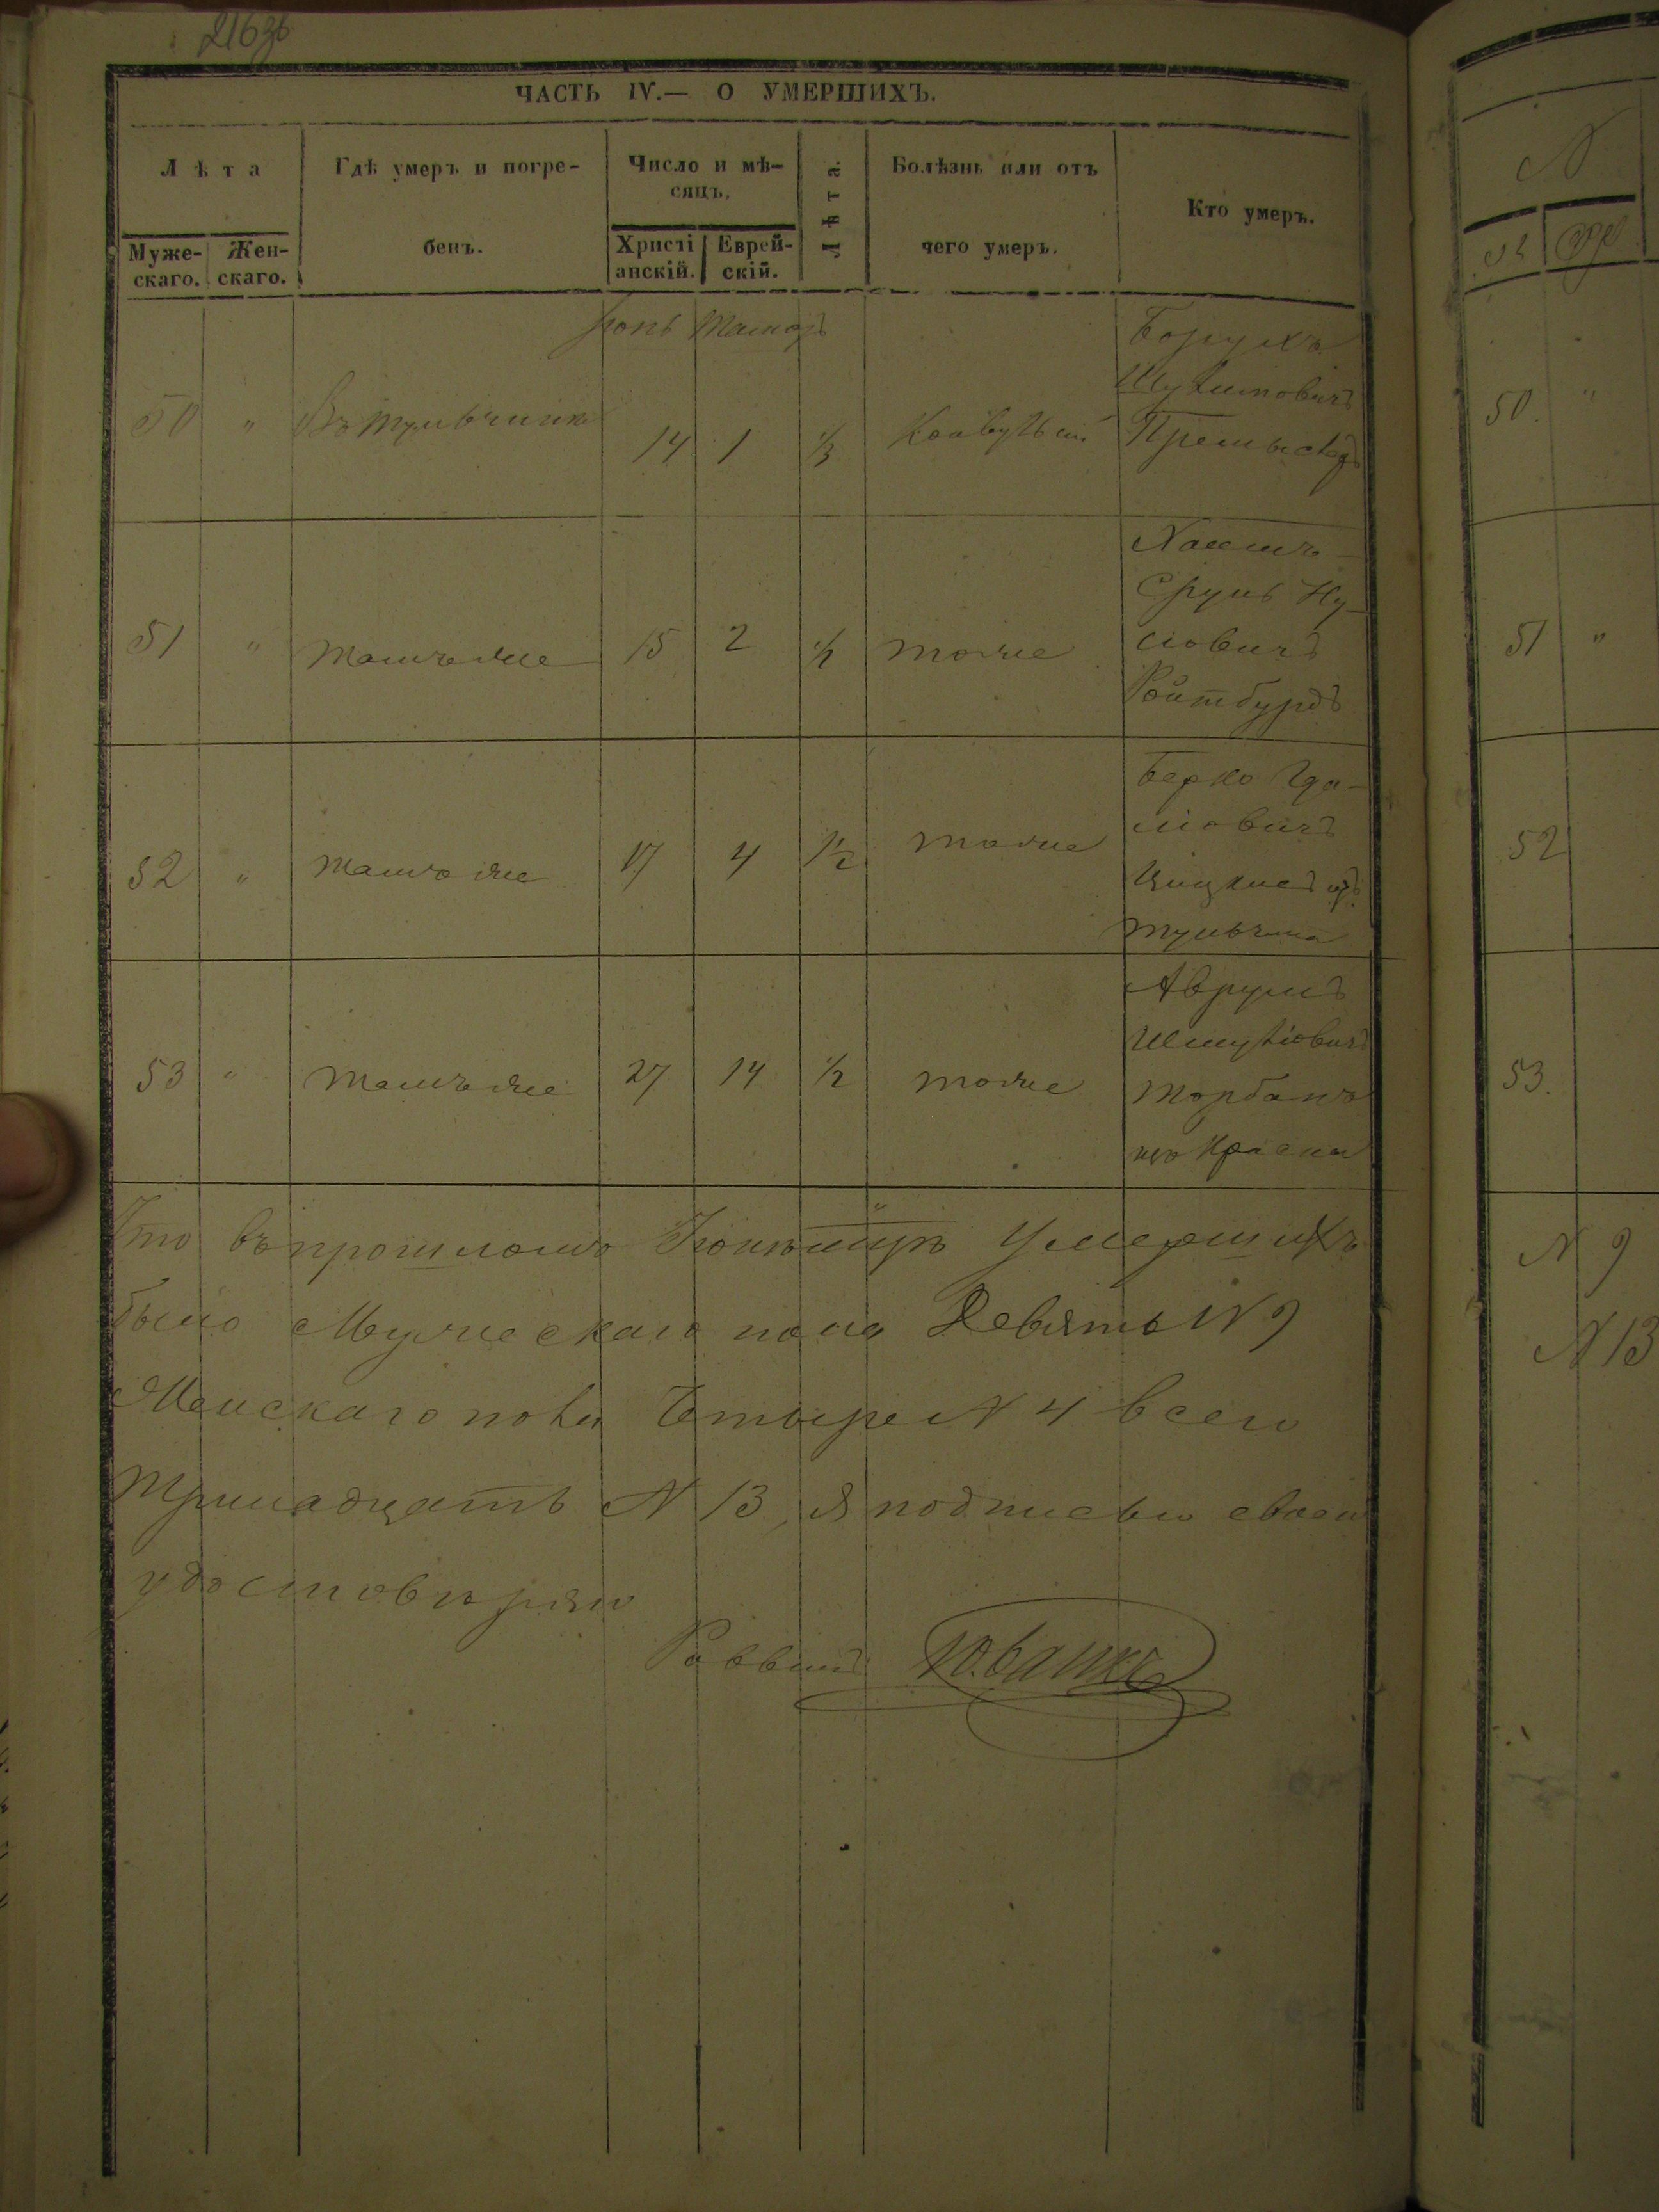 216 об
ЧАСТЬ IV.— О УМЕРШИХЪ.
Лѣта
Мужескаго.
Женскаго.
Гдѣ умеръ и погребенъ.
Число и мѣсяцъ.
Христіанскій.
Еврейскій.
Лѣта.
Болѣзнь или отъ чего умеръ.
Кто умеръ.
Іюнь Тамозъ
50 " Въ Тульчинѣ 14 1 1/3
Борухъ
51 " тамъже 15 2 1/2 тоже
Хаимъ-
Срулъ Ну-
сіовичъ
Ройтбурдъ
52 " тамъже 17 4 1½ тоже
Берко Гда-
ліовичъ
изъ
Тульчина
53 " тамъже 27 14 1/2 тоже
Аврумъ
Шмуліовичъ
Торбанъ
изъ Красни
Что въ прошломъ Іюнѣ умершихъ
было Мужескаго пола Девять N 9
Женскаго пола Четыре N 4 всего
Тринадцать N 13, я подписью своею
удостовѣряю
Раввинъ
N
50. "
51 "
52
53.
N 9
N 13